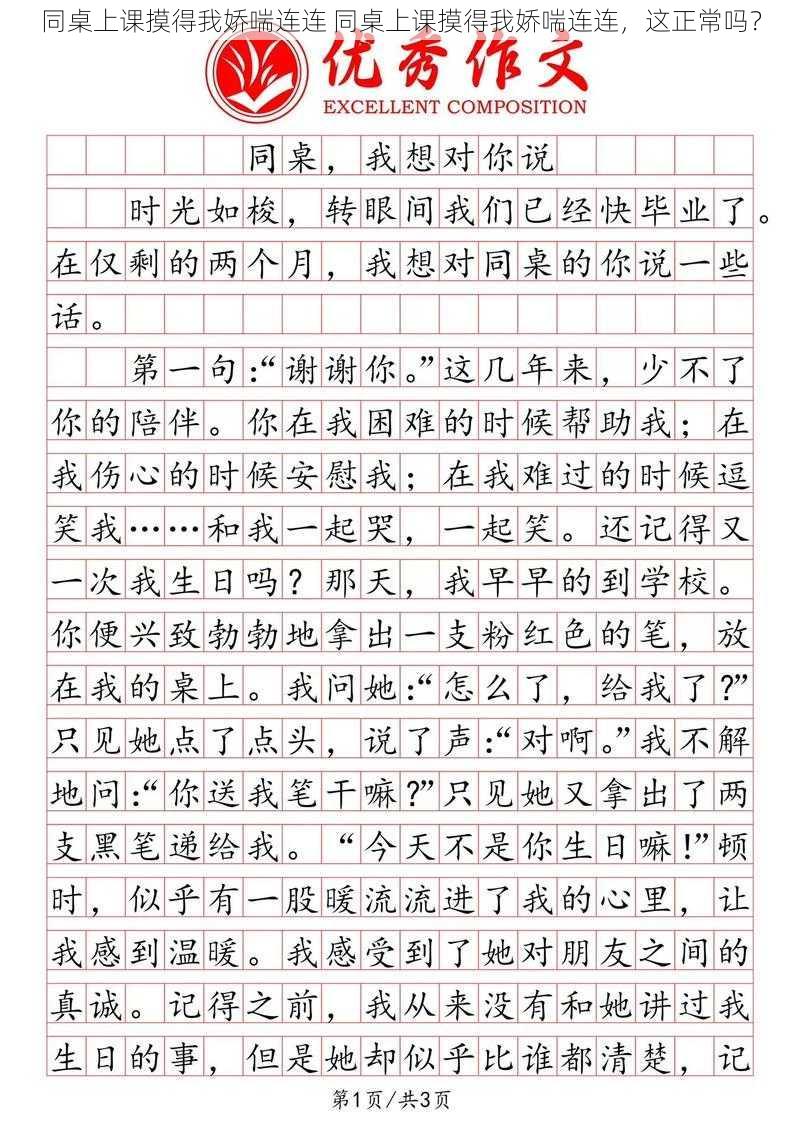 同桌上课摸得我娇喘连连 同桌上课摸得我娇喘连连，这正常吗？
优秀作文
EXCELLENT COMPOSITION
同桌，我想对你说
时光如梭，转眼间我们已经快毕业了。
在仅剩的两个月，我想对同桌的你说一些
话。
第一句：“谢谢你。”这几年来，少不了
你的陪伴。你在我困难的时候帮助我；在
我伤心的时候安慰我；在我难过的时候逗
笑我……和我一起哭，一起笑。还记得又
一次我生日吗？那天，我早早的到学校。
你便兴致勃勃地拿出一支粉红色的笔，放
在我的桌上。我问她：“怎么了，给我了？”
只见她点了点头，说了声：“对啊。”我不解
地问：“你送我笔干嘛？”只见她又拿出了两
支黑笔递给我。“今天不是你生日嘛！”顿
时，似乎有一股暖流流进了我的心里，让
我感到温暖。我感受到了她对朋友之间的
真诚。记得之前，我从来没有和她讲过我
生日的事，但是她却似乎比谁都清楚，记
第1页/共3页